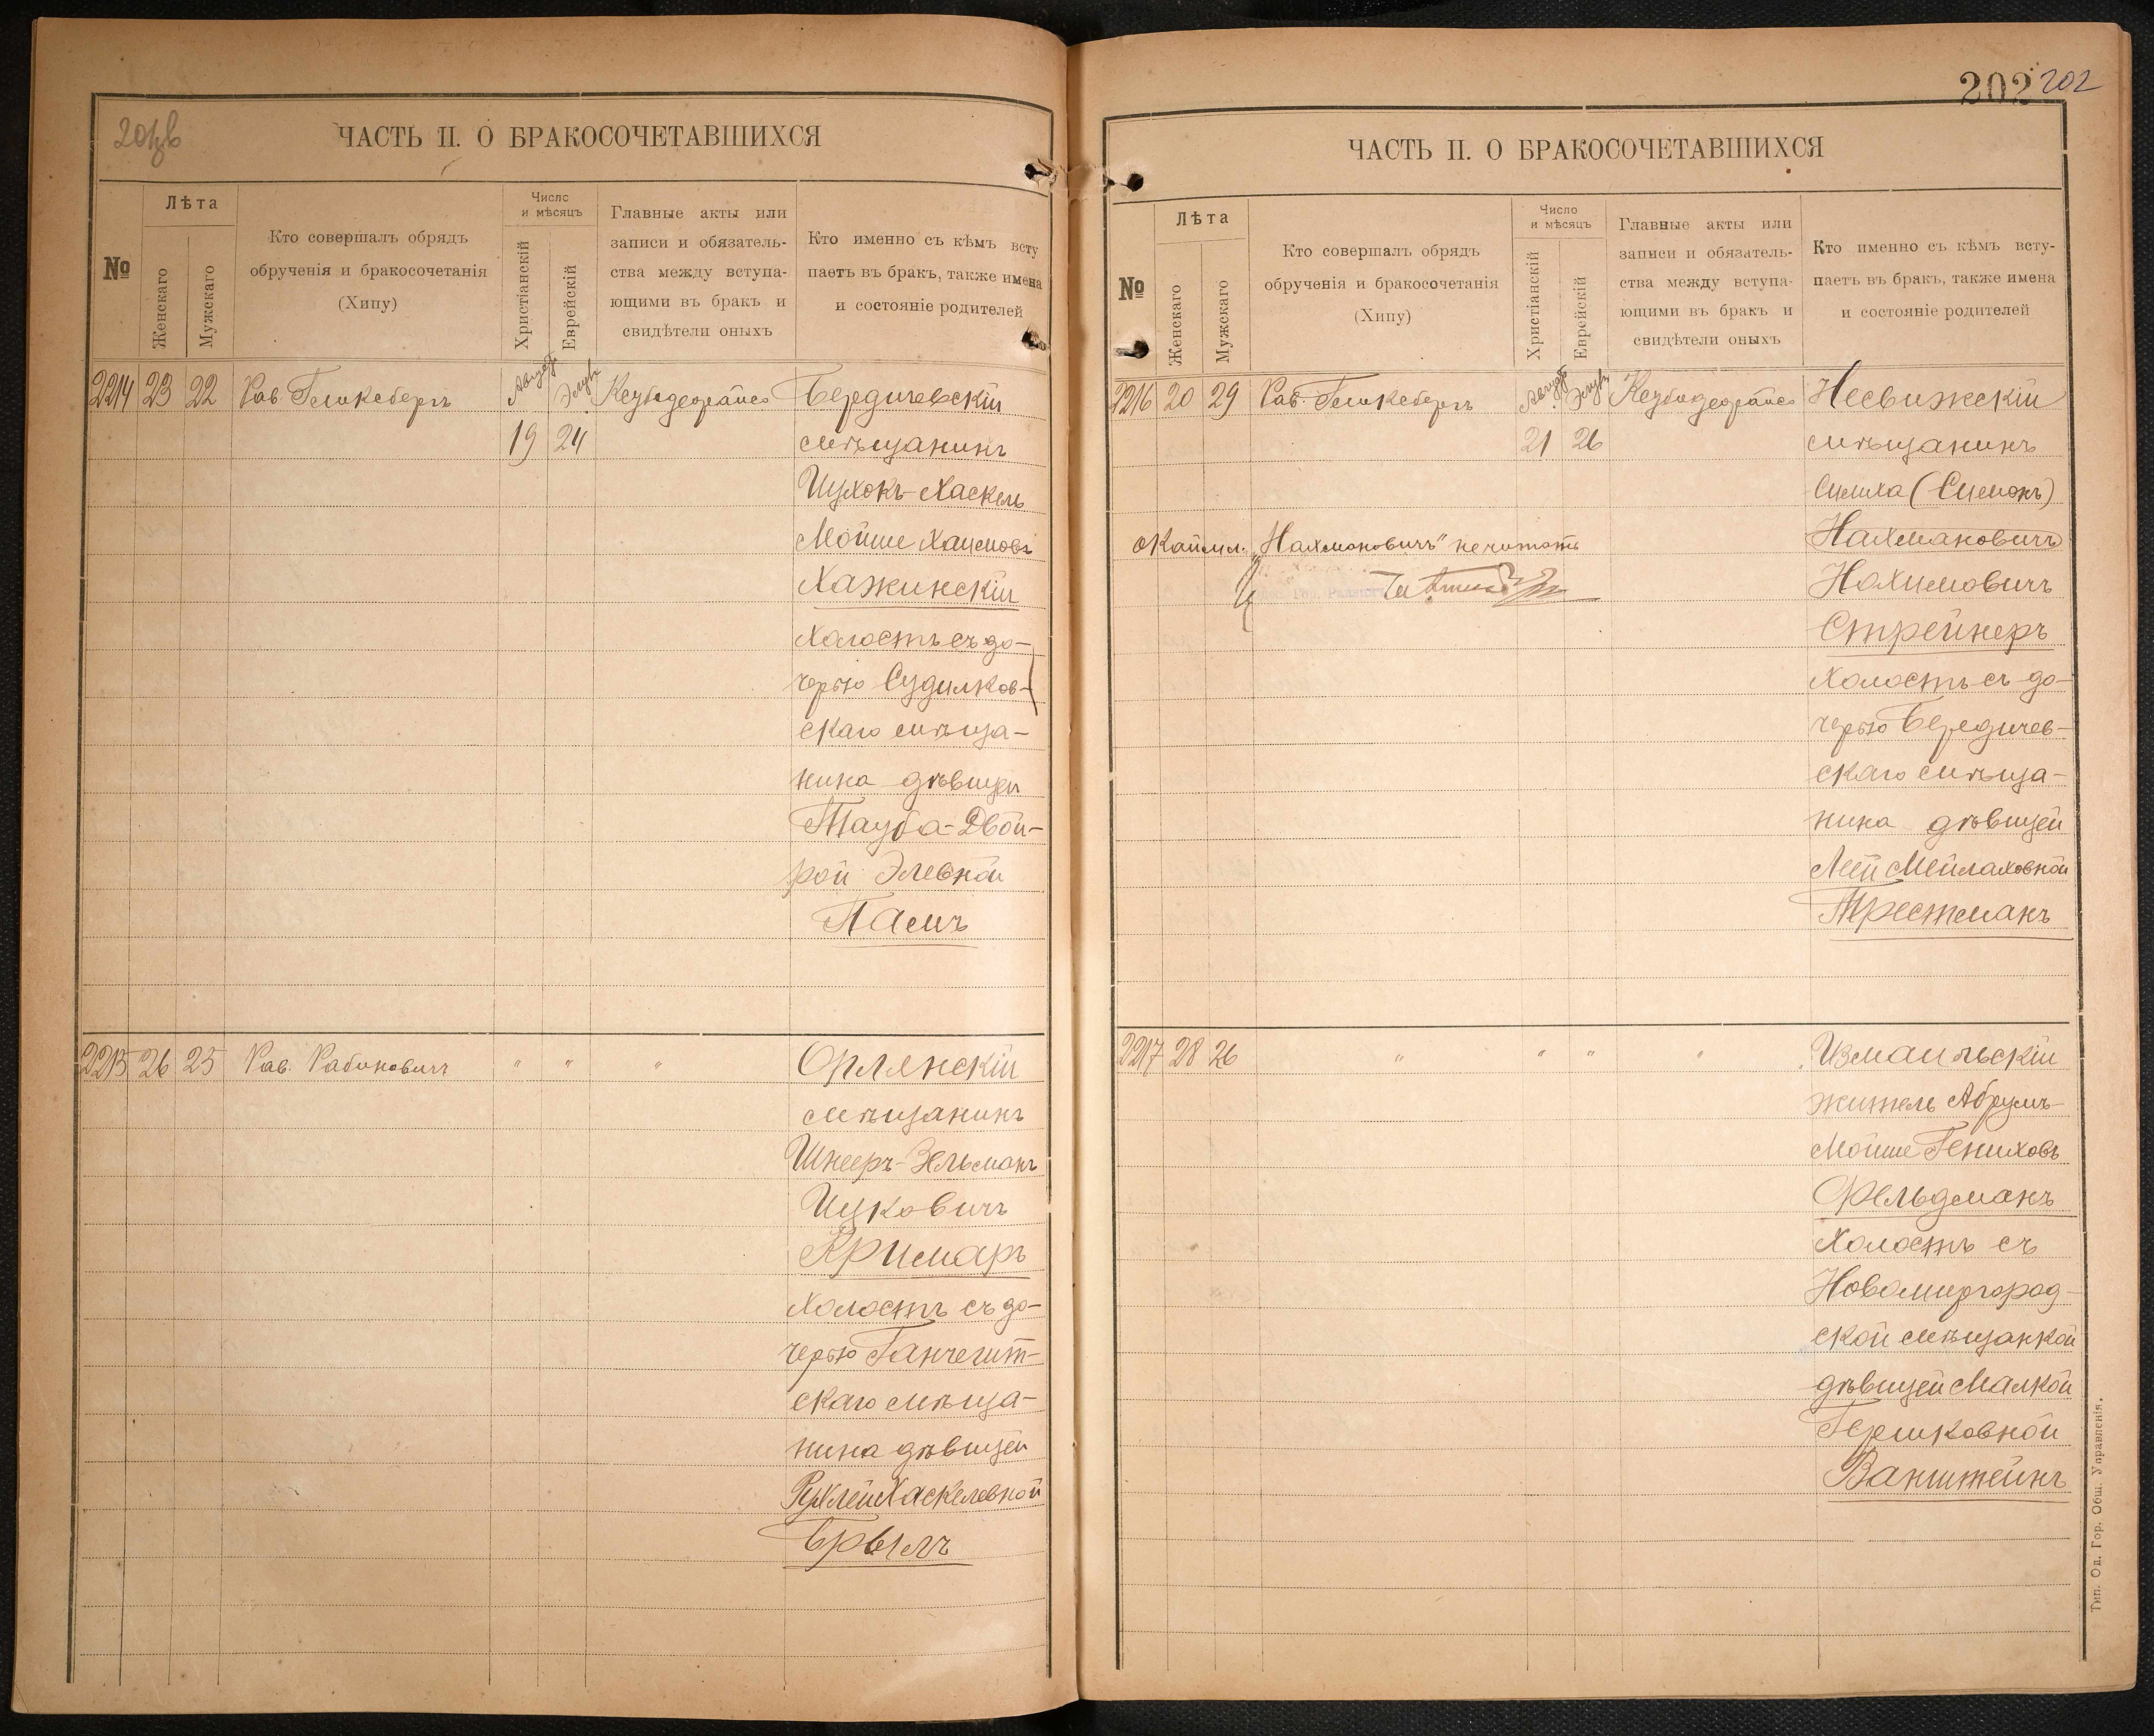 ЧАСТЬ II. О БРАКОСОЧЕТАВШИХСЯ
№
Лѣта
Женскаго
Мужскаго
Кто совершалъ обрядъ
обрученія и бракосочетанія
(Хипу)
Число
и мѣсяцъ
Христіанскій
Еврейскій
Главные акты или
записи и обязатель-
ства между вступа-
ющими въ бракъ и
свидѣтели оныхъ
Кто именно съ кѣмъ всту
паетъ въ бракъ, также имена
и состояніе родителей
2214 23 22 Рав. Гешксбергъ Августъ Элулъ Бердичевскій
19 24 мѣщанинъ
Ицхокъ-Хаскель
Мойше Хаимовъ
Хажинскій
холостъ съ до-
черью Судилков-
скаго мѣща-
нина дѣвицей
Тауба-Двой-
рой Элевной
Памъ
2215 26 25 Рав. Рабиновичъ " " " Орлянскій
мѣщанинъ
Шнееръ-Зельманъ
Ицковичъ
Кримаръ
холостъ съ до-
черью Ганчешт-
скаго мѣща-
нина дѣвицей
Рухлей Хаскелевной
Брылъ
202 202
ЧАСТЬ II. О БРАКОСОЧЕТАВШИХСЯ
№
Лѣта
Женскаго
Мужскаго
Кто совершалъ обрядъ
обрученія и бракосочетанія
(Хипу)
Число
и мѣсяцъ
Христіанскій
Еврейскій
Главные акты или
записи и обязатель-
ства между вступа-
ющими въ бракъ и
свидѣтели оныхъ
Кто именно съ кѣмъ всту-
паетъ въ бракъ, также имена
и состояніе родителей
2216 20 29 Рав. Гешксбергъ Августъ Элулъ Несвижскій
21 26 мѣщанинъ
Симха (Симонъ)
Нахмановичъ
окаймл. „Нахмановичъ" не читать
Нохимовичъ
Стрейнеръ
холостъ съ до-
черью Бердичев-
скаго мѣща-
нина дѣвицей
Леей Мейлаховной
Трестманъ
2217 28 26 " " " " Измаильскій
житель Абрумъ-
Мойше Гениховъ
Фельдманъ
холостъ съ
Новомиргород-
ской мѣщанкой
дѣвицей Малкой
Гершковной
Ванштейнъ
Тип. Од. Гор. Общ. Управленія.